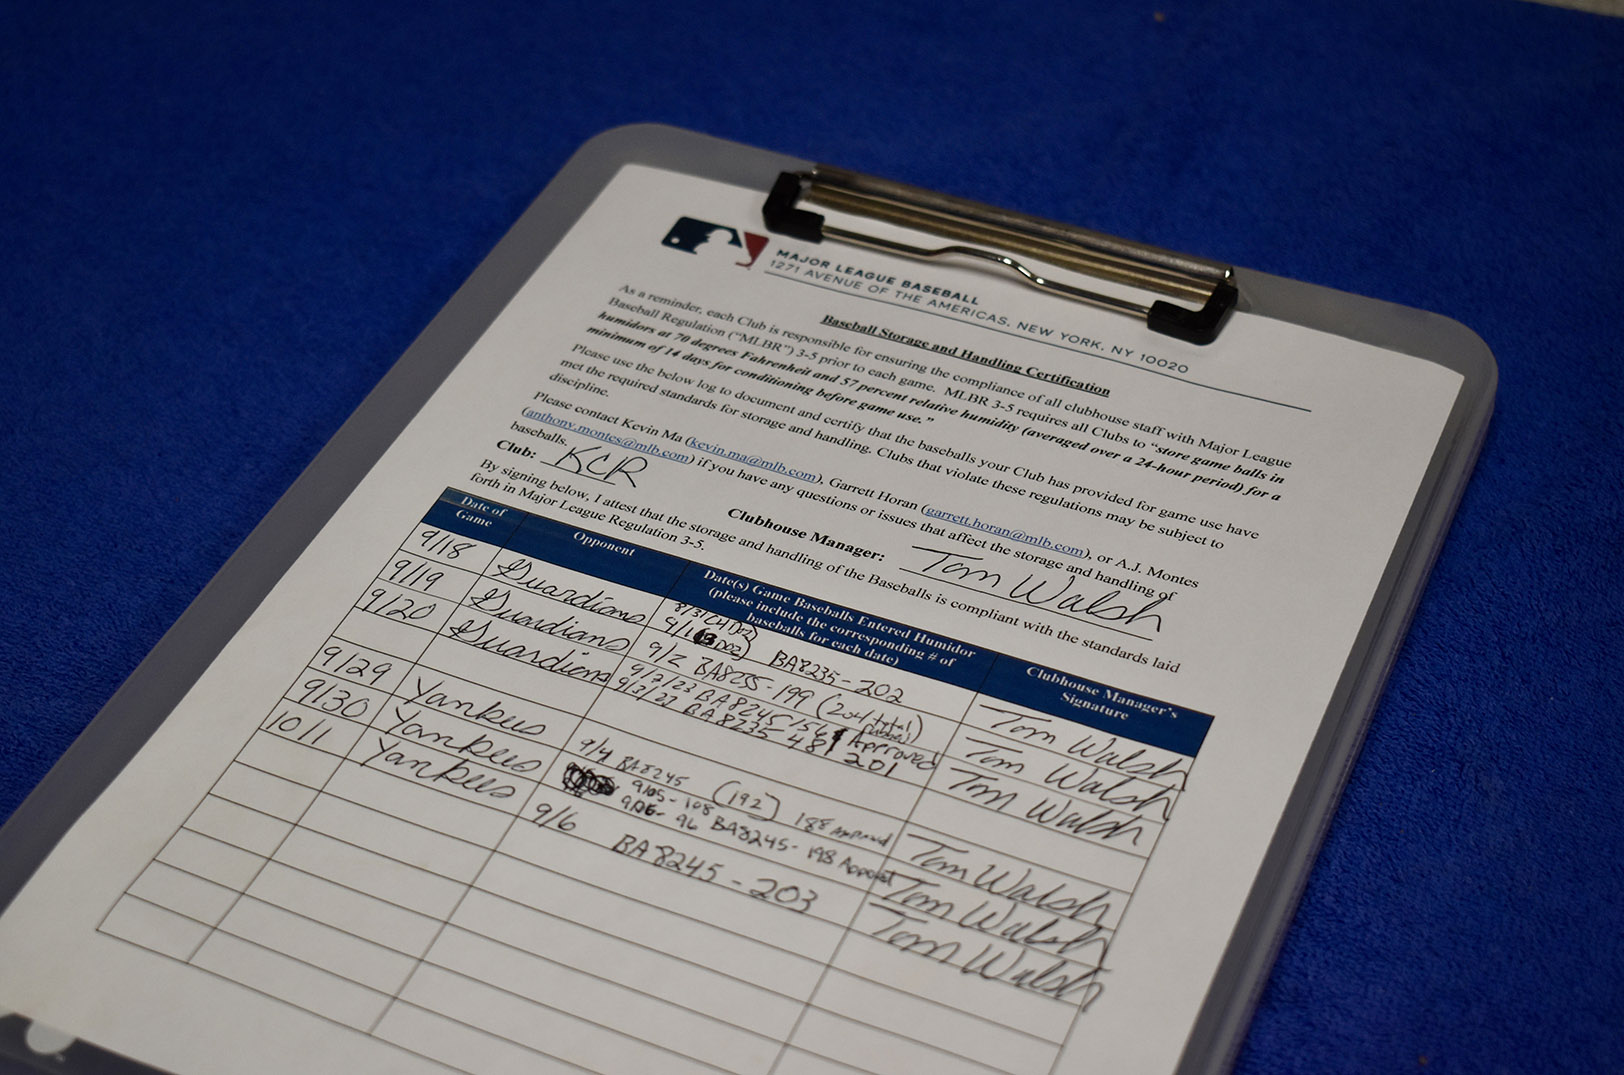 MAJOR LEAGUE BASEBALL
1271 AVENUE OF THE AMERICAS, NEW YORK, NY 10020
Baseball Storage and Handling Certification
As a reminder, each Club is responsible for ensuring the compliance of all clubhouse staff with Major League
Baseball Regulation (“MLBR”) 3-5 prior to each game. MLBR 3-5 requires all Clubs to “store game balls in
humidors at 70 degrees Fahrenheit and 57 percent relative humidity (averaged over a 24-hour period) for a
minimum of 14 days for conditioning before game use.”
Please use the below log to document and certify that the baseballs your Club has provided for game use have
met the required standards for storage and handling. Clubs that violate these regulations may be subject to
discipline.
Please contact Kevin Ma (kevin.ma@mlb.com), Garrett Horan (garrett.horan@mlb.com), or A.J. Montes
(anthony.montes@mlb.com) if you have any questions or issues that affect the storage and handling of
baseballs.
Club: KCR Clubhouse Manager: Tom Walsh
By signing below, I attest that the storage and handling of the Baseballs is compliant with the standards laid
forth in Major League Regulation 3-5.
Date of Game
Opponent
Date(s) Game Baseballs Entered Humidor
(please include the corresponding # of
baseballs for each date)
Clubhouse Manager's
Signature
9/18 Guardians BA8235-202 Tom Walsh
9/19 Guardians 9/2 BA8235-199 (204 total) Tom Walsh
9/20 Guardians 9/2/23 BA8245 156 Approved
9/3/22 BA8235 48 201 Tom Walsh
9/29 Yankees 9/4 BA8245 (192) 188 Approved Tom Walsh
9/30 Yankees 9/05-108
9/06-96 BA8245-198 Tom Walsh
10/1 Yankees 9/6 BA8245-203 Tom Walsh